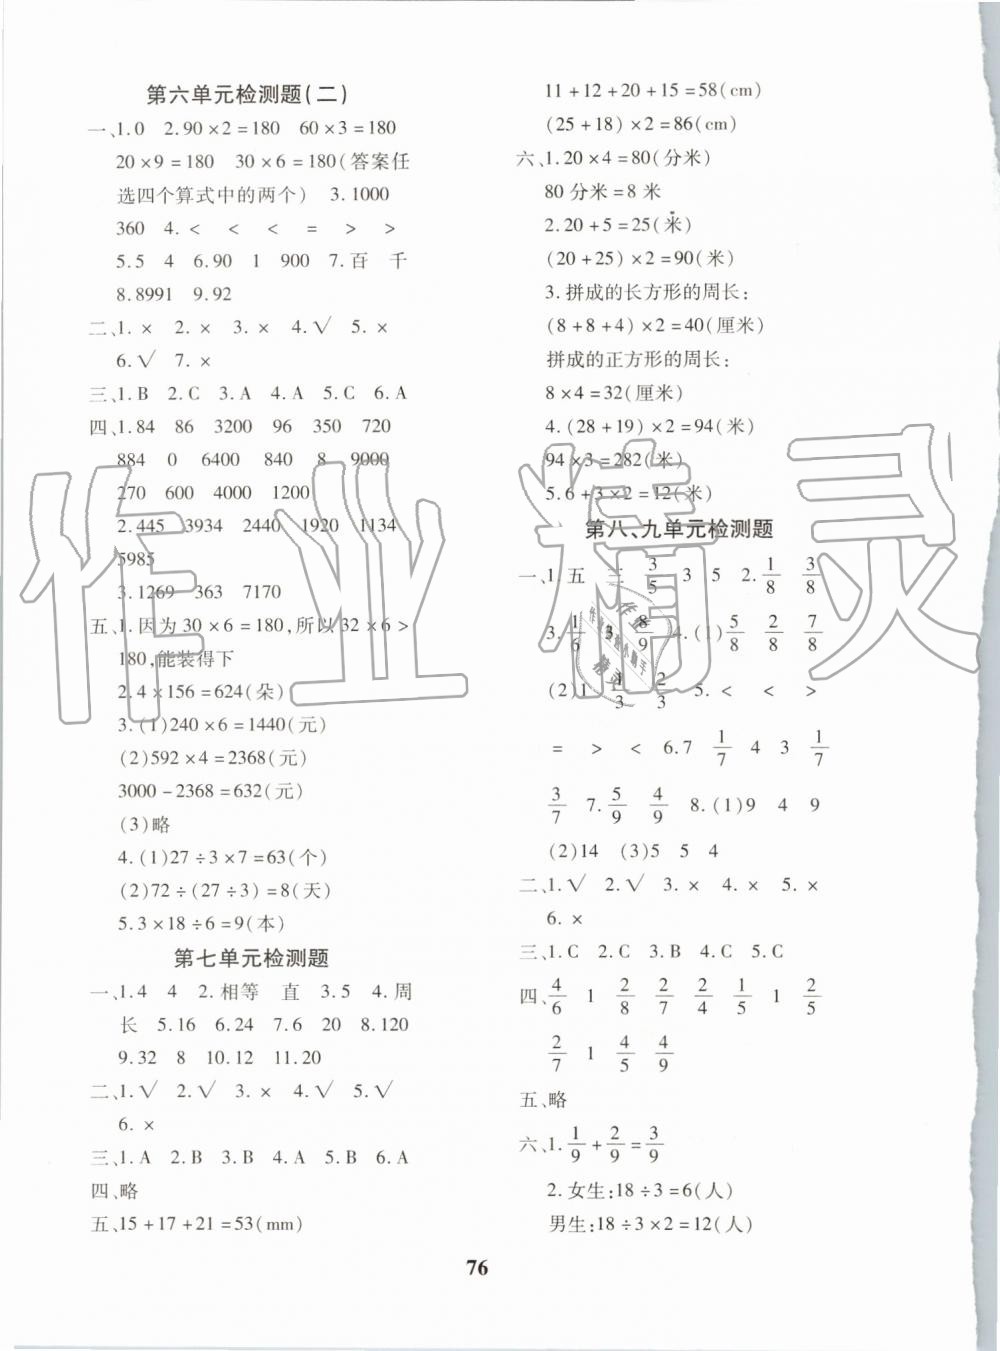 第六单元检测题(二)
一、1.0 2.90×2=180 60×3=180
20×9=180 30×6=180(答案任
选四个算式中的两个) 3.1000
360 4.< < < = > >
5.5 4 6.90 1 900 7.百 千
8.8991 9.92
二、1.× 2.× 3.× 4.√ 5.×
6.√ 7.×
三、1.B 2.C 3.A 4.A 5.C 6.A
四、1.84 86 3200 96 350 720
884 0 6400 840 8 9000
270 600 4000 1200
2.445 3934 2440 1920 1134
5985
3.1269 363 7170
五、1.因为30×6=180,所以32×6>
180,能装得下
2.4×156=624(朵)
3.(1)240×6=1440(元)
(2)592×4=2368(元)
3000-2368=632(元)
(3)略
4.(1)27÷3×7=63(个)
(2)72÷(27÷3)=8(天)
5.3×18÷6=9(本)
第七单元检测题
一、1.4 4 2.相等 直 3.5 4.周
长 5.16 6.24 7.6 20 8.120
9.32 8 10.12 11.20
二、1.√ 2.√ 3.× 4.√ 5.√
6.×
三、1.A 2.B 3.B 4.A 5.B 6.A
四、略
五、15+17+21=53(mm)
11+12+20+15=58(cm)
(25+18)×2=86(cm)
六、1.20×4=80(分米)
80分米=8米
2.20+5=25(米)
(20+25)×2=90(米)
3.拼成的长方形的周长:
(8+8+4)×2=40(厘米)
拼成的正方形的周长:
8×4=32(厘米)
4.(28+19)×2=94(米)
94×3=282(米)
5.6+3×2=12(米)
第八、九单元检测题
一、1.五 三 3/5 3 5 2.1/8 3/8
3.1/6 3 8/9 4.(1)5/8 2/8 7/8
(2)1 1/3 2/3 5.< < >
= > < 6.7 1/7 4 3 1/7
3/7 7.5/9 4/9 8.(1)9 4 9
(2)14 (3)5 5 4
二、1.√ 2.√ 3.× 4.× 5.×
6.×
三、1.C 2.C 3.B 4.C 5.C
四、4/6 1 2/8 2/7 2/4 1/5 1 2/5
2/7 1 4/5 4/9
五、略
六、1.1/9+2/9=3/9
2.女生:18÷3=6(人)
男生:18÷3×2=12(人)
76
作业精灵